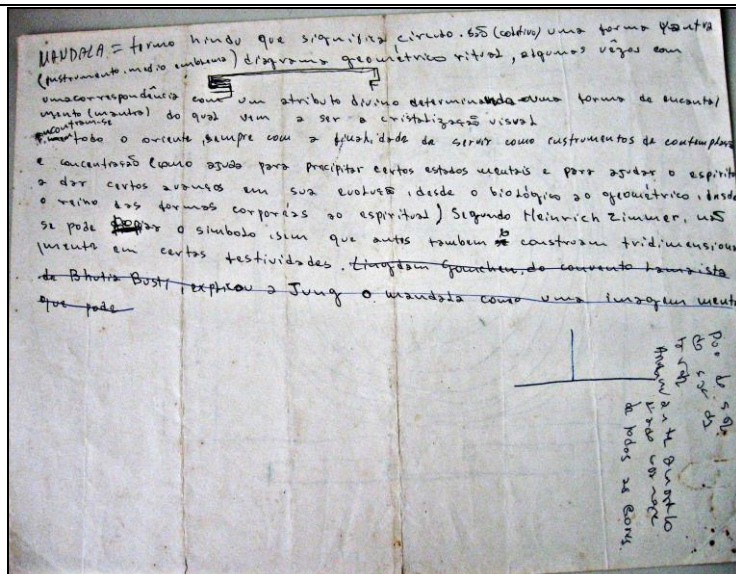 MANDALA = termo hindu que significa círculo. São (coletivo) uma forma yantra
(instrumento. medio emblema) diagrama geométrico ritual, algumas vezes com
uma correspondência com um atributo divino determinando uma forma de encanta/
mento (mantra) do qual vem a ser a cristalização visual
encontram-se todo o oriente, sempre com a finalidade de servir como instrumentos de contemplação
e concentração (como ajuda para precipitar certos estados mentais e para ajudar o espirito
a dar certos avansos em sua evolusão, desde o biológico ao geométrico, desde
o reino das formas corporéas ao espiritual) Segundo Heinrich Zimmer, não
se pode o simbolo, sem que antes tambem construam tridimensional
mente em certas festividades. Lingdam Gomchen, do convento lamaista
de Bhutia Busty, explicou a Jung o mandala como uma imagem menta
que pode
de todas as cores.